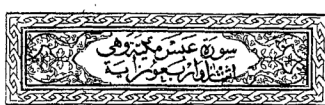 سورة عبس مكية وهي
اثنتان واربعون اية